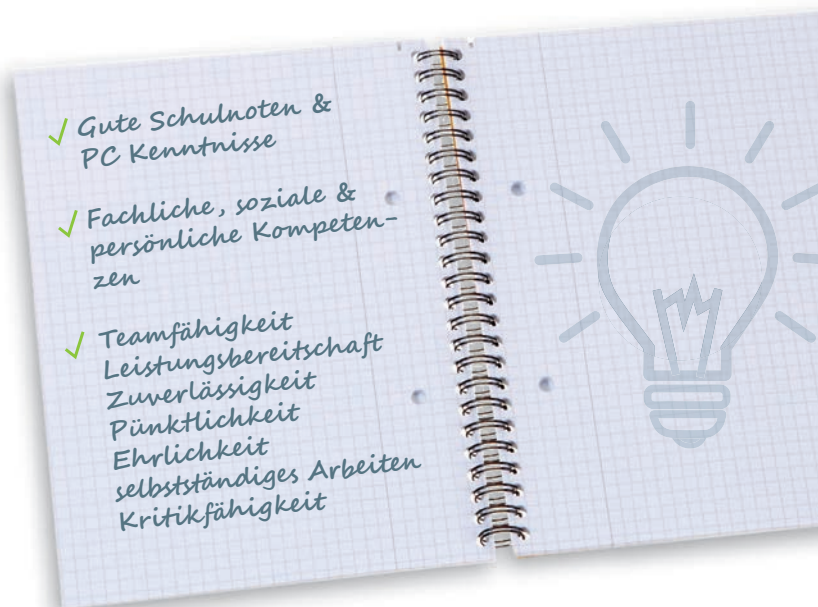 Gute Schulnoten &
PC Kenntnisse
Fachliche, soziale &
persönliche Kompeten-
zen
Teamfähigkeit
Leistungsbereitschaft
Zuverlässigkeit
Pünktlichkeit
Ehrlichkeit
selbstständiges Arbeiten
Kritikfähigkeit